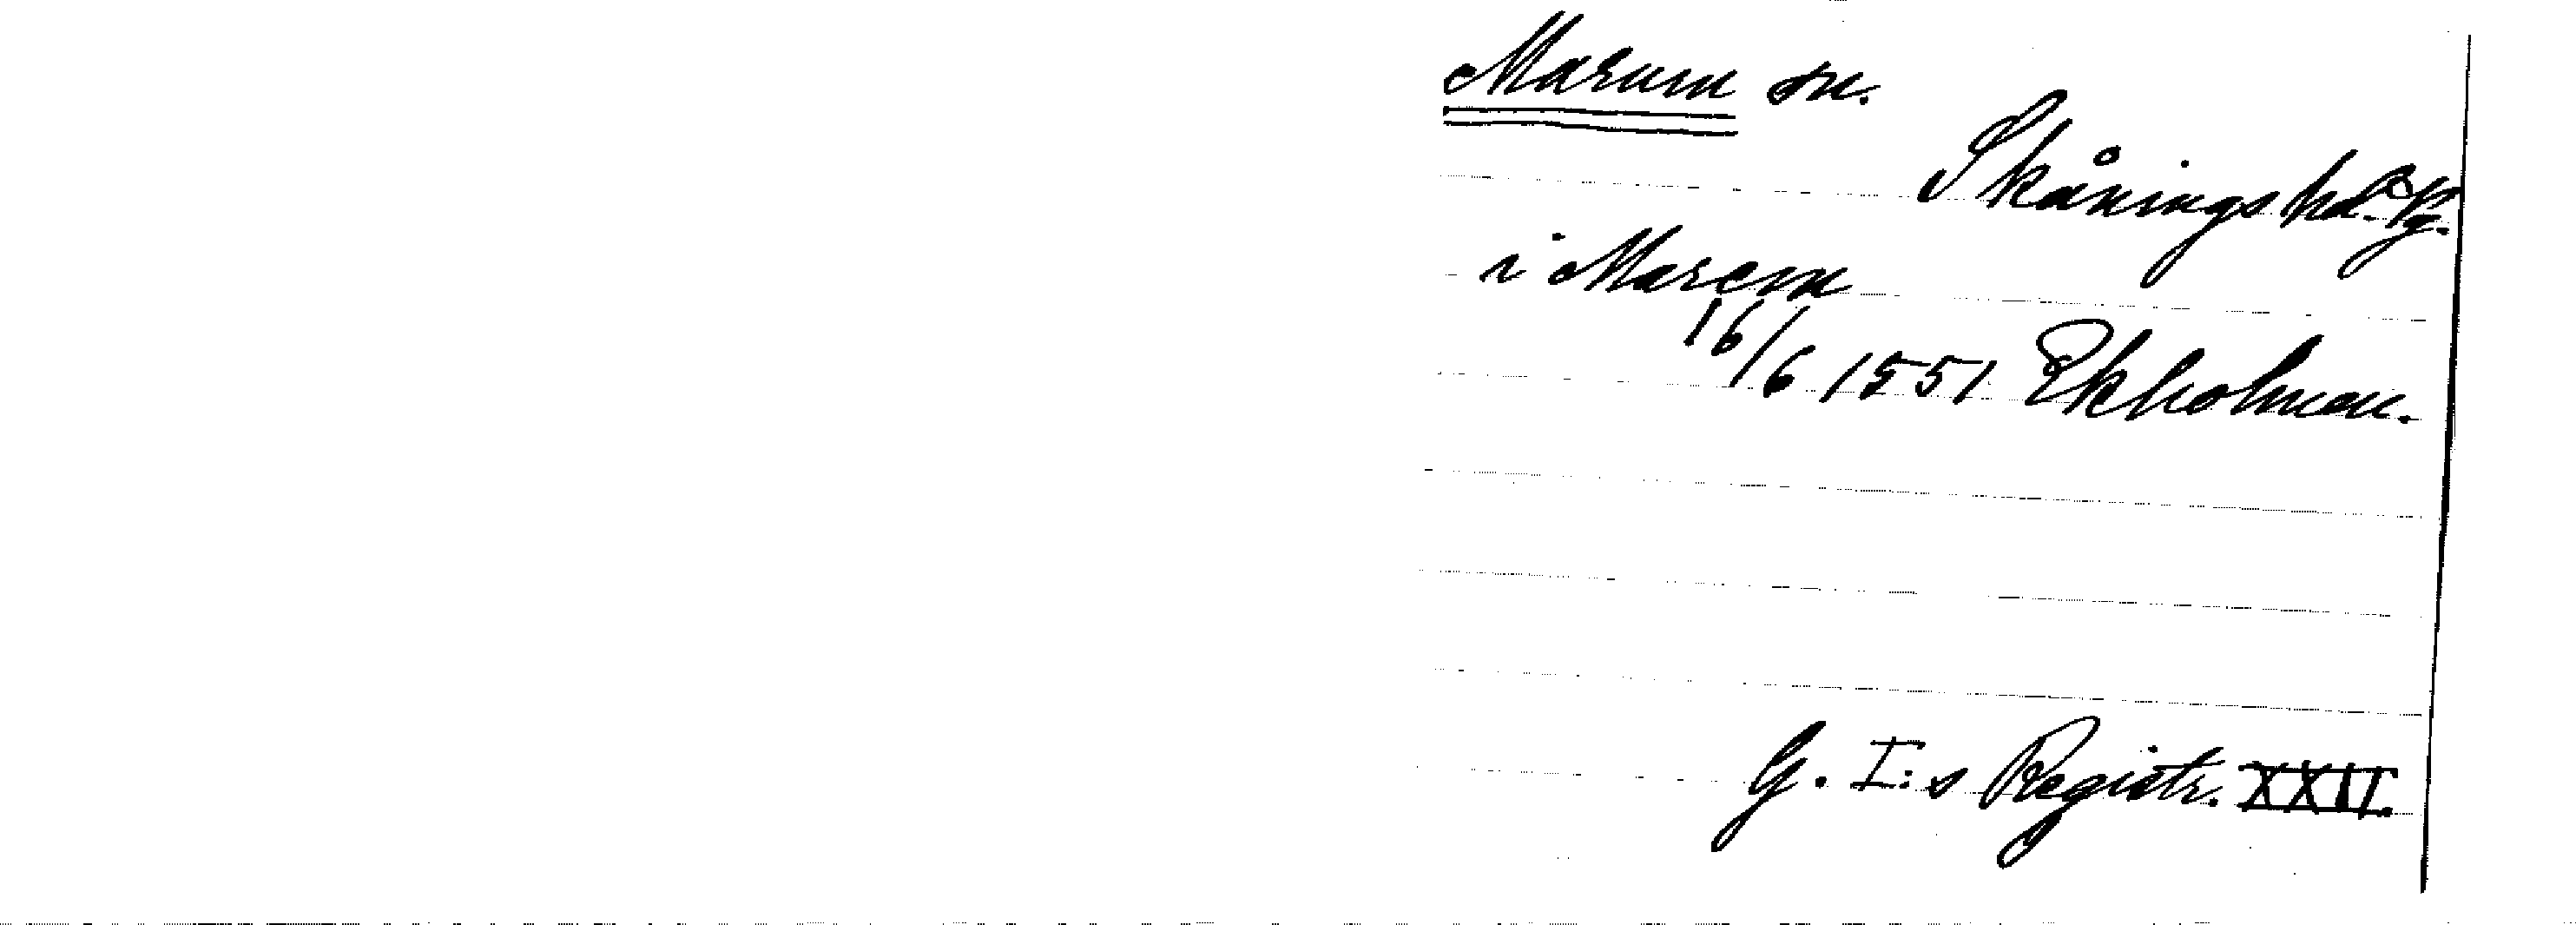 Marum sn.
Skånings hd. Vg.
i Marem
16/6 1551 Ekholmen.
G. I:s Registr. XXII.